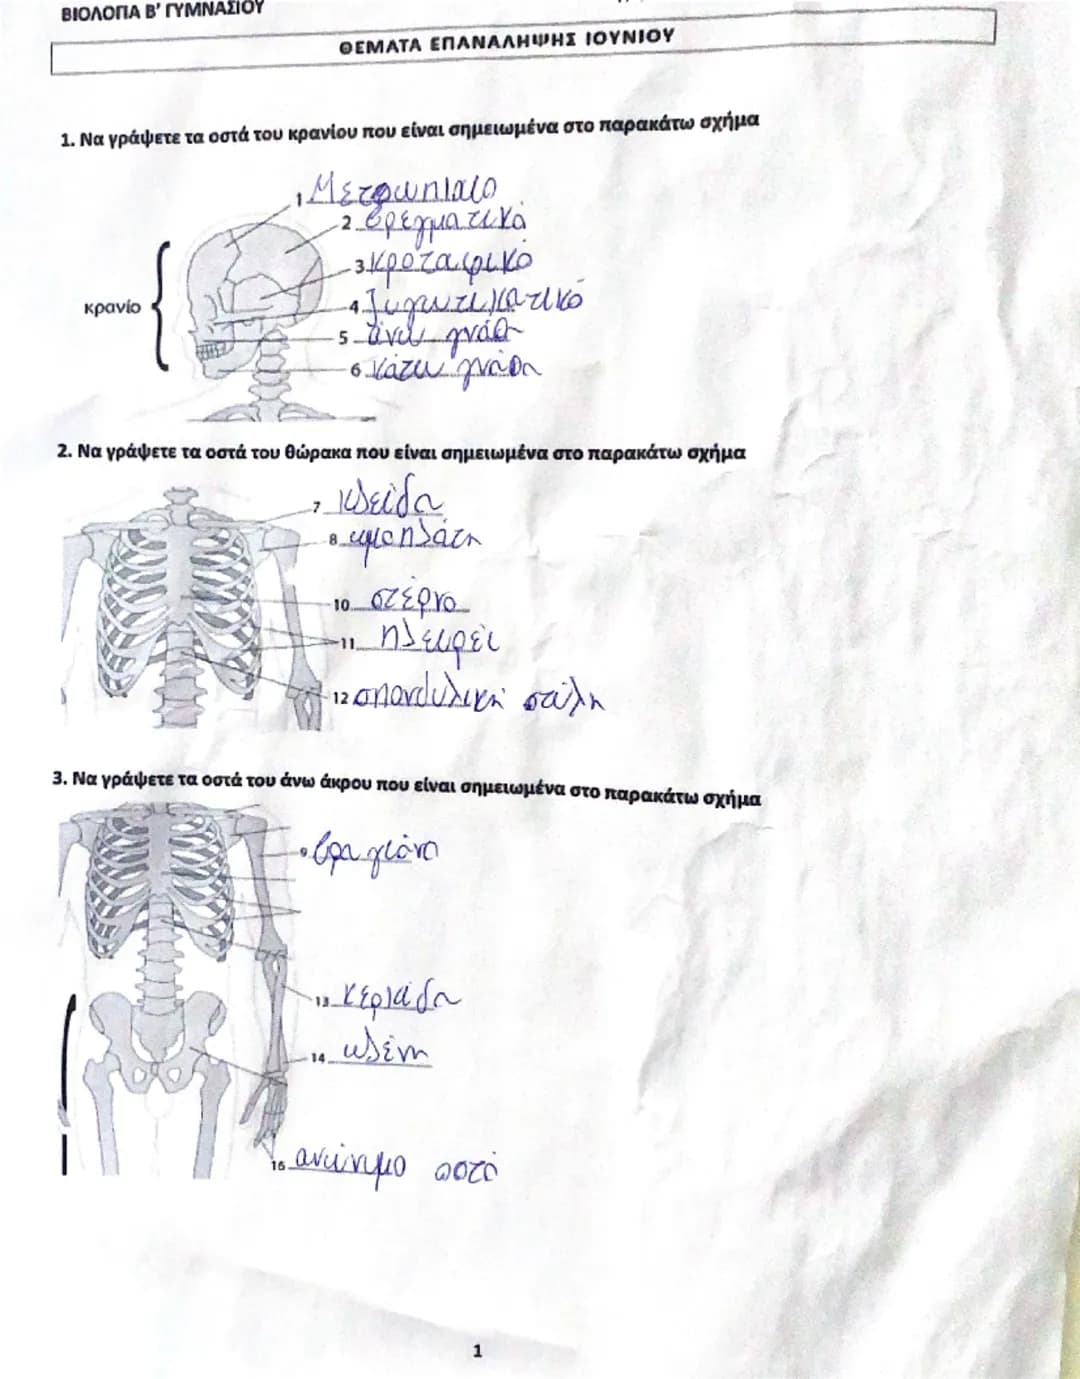 ΒΙΟΛΟΓΙΑ Β' ΓΥΜΝΑΣΙΟΥ
ΘΕΜΑΤΑ ΕΠΑΝΑΛΗΨΗΣ ΙΟΥΝΙΟΥ
1. Να γράψετε τα οστά του κρανίου που είναι σημειωμένα στο παρακάτω σχήμα
1 Μετωπιαίο
2 βρεγματικό
3 κροταφικό
κρανίο
4
5 άνω γνάθ
6 κάτω γνάθο
2. Να γράψετε τα οστά του θώρακα που είναι σημειωμένα στο παρακάτω σχήμα
7 κλείδα
8 ωμοπλάτη
10 στέρνο
11 πλευρές
12 σπονδυλική στήλη
3. Να γράψετε τα οστά του άνω άκρου που είναι σημειωμένα στο παρακάτω σχήμα
9 βραχιόνιο
13 κερκίδα
14 ωλένη
16 ανώνυμο οστό
1